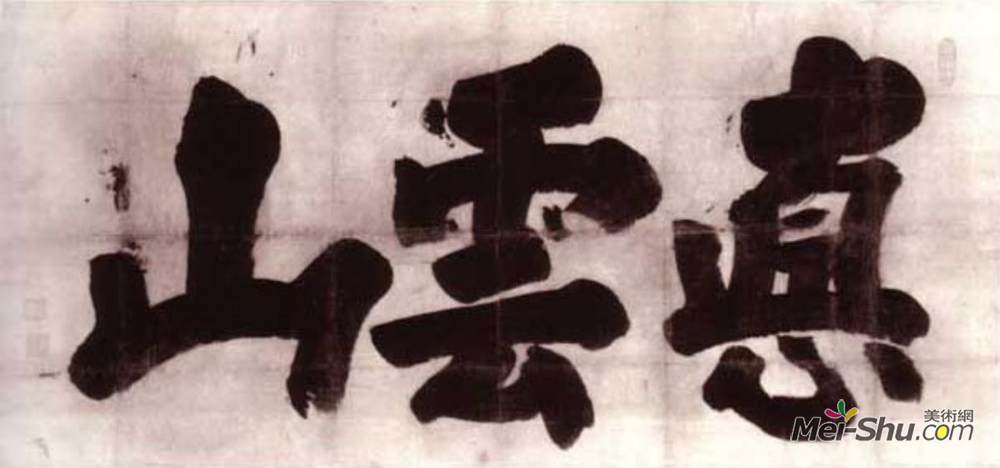 眞雲山
美術網
Mei-Shu.com